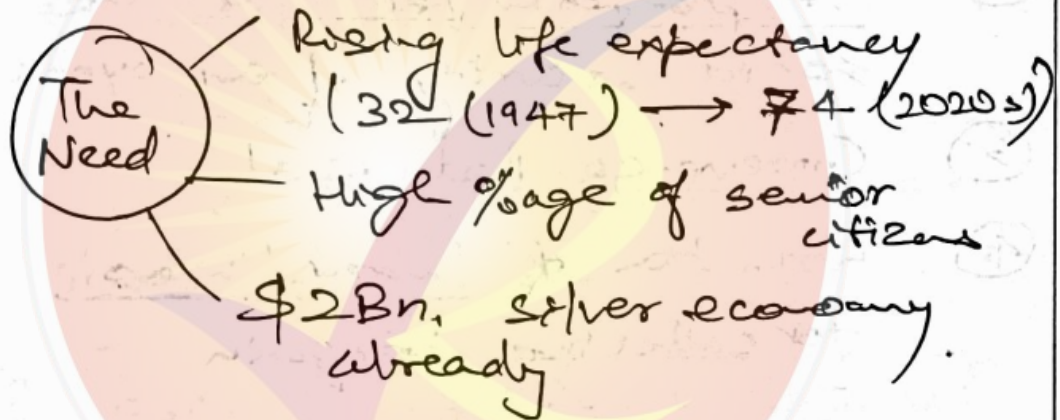 The
Need
Rising life expectancy
(32 (1947) → 74 (2020s))
High %age of senior
citizens
$2Bn. silver economy
already